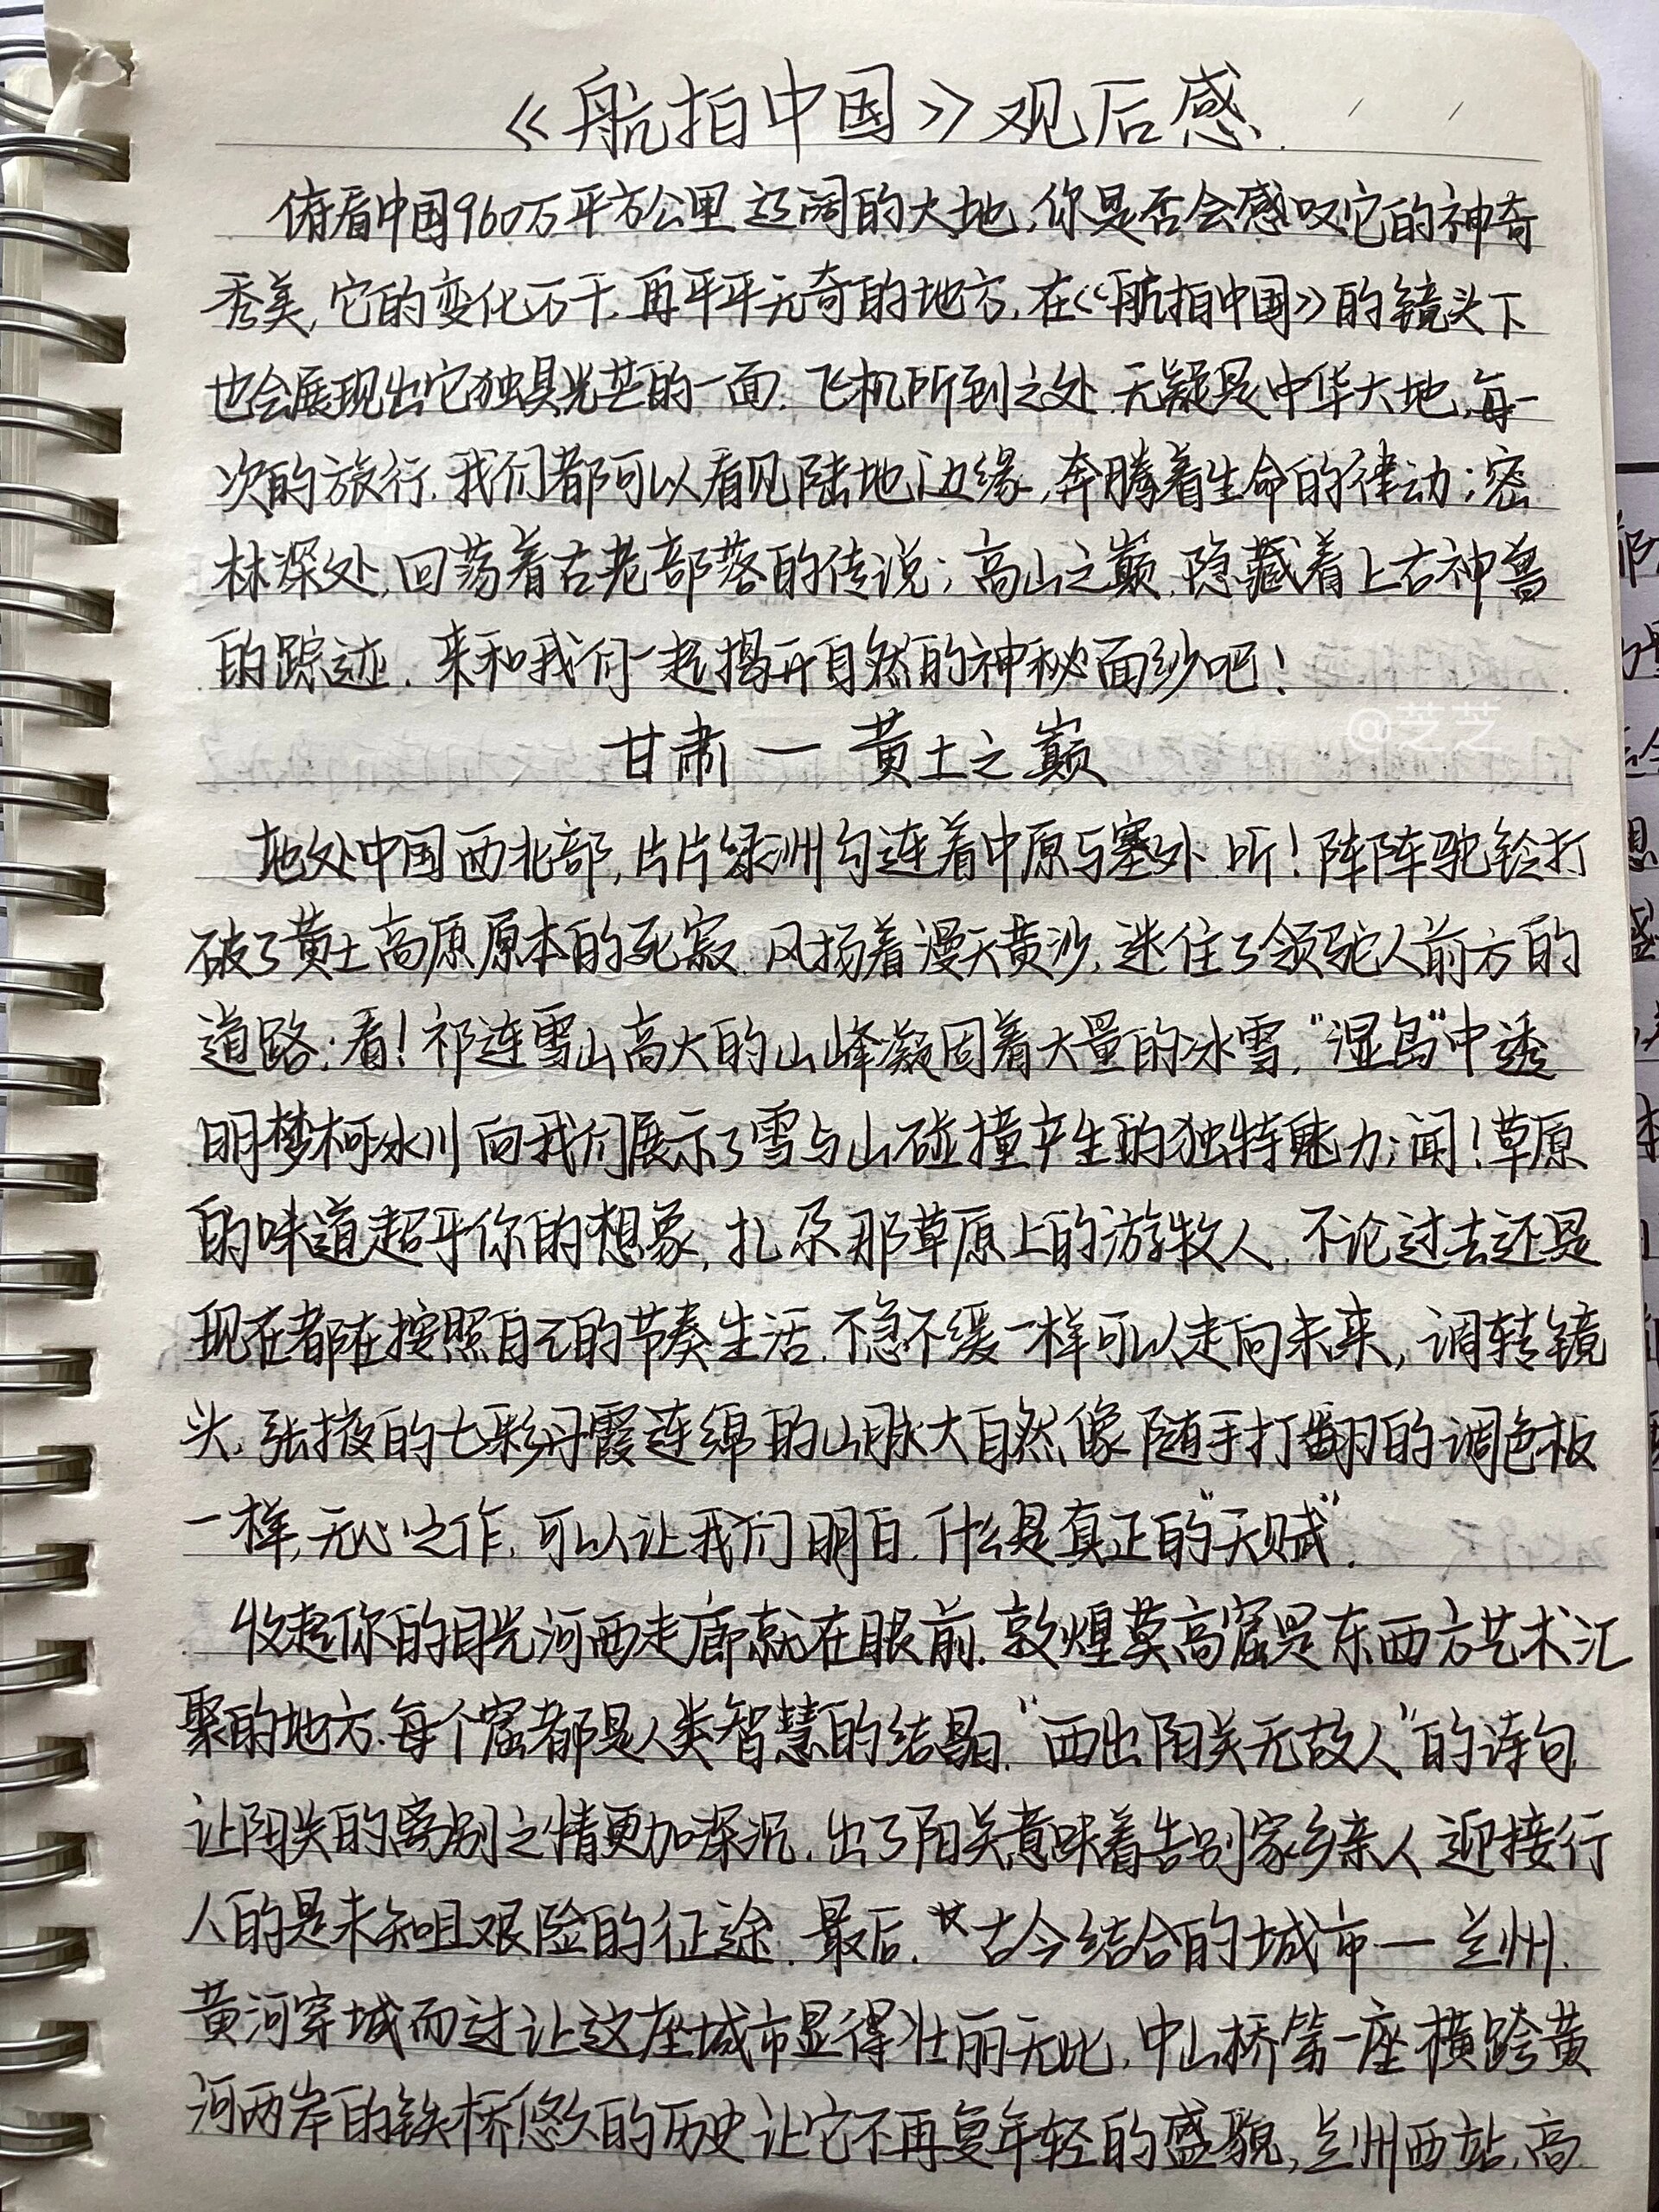 《航拍中国》观后感.
俯看中国960万平方公里辽阔的大地,你是否会感叹它的神奇
秀美,它的变化万千.再平平无奇的地方,在《航拍中国》的镜头下
也会展现出它独具光芒的一面.飞机所到之处.无疑是中华大地,每一
次的旅行.我们都可以看见陆地边缘,奔腾着生命的律动;密
林深处,回荡着古老部落的传说;高山之巅,隐藏着上古神兽
的踪迹.来和我们一起揭开自然的神秘面纱吧!
@芝芝
甘肃—黄土之巅
地处中国西北部,片片绿洲勾连着中原与塞外.听!阵阵驼铃打
破了黄土高原原本的死寂.风扬着漫天黄沙,迷住了领驼人前方的
道路;看!祁连雪山高大的山峰凝固着大量的冰雪,"湿岛"中透
明梦柯冰川向我们展示了雪与山碰撞产生的独特魅力;闻!草原
的味道超乎你的想象,扎尕那草原上的游牧人.不论过去还是
现在都在按照自己的节奏生活.不急不缓一样可以走向未来,调转镜
头,张掖的七彩丹霞连绵的山脉大自然像随手打翻的调色板
一样,无心之作,可以让我们明白.什么是真正的"天赋".
收起你的目光河西走廊就在眼前.敦煌莫高窟是东西方艺术汇
聚的地方.每个窟都是人类智慧的结晶."西出阳关无故人"的诗句
让阳关的离别之情更加深沉.出了阳关意味着告别家乡亲人 迎接行
人的是未知且艰险的征途.最后.古今结合的城市—兰州.
黄河穿城而过让这座城市显得壮丽无比,中山桥第一座横跨黄
河两岸的铁桥悠久的历史让它不再复年轻的盛貌,兰州西站,高